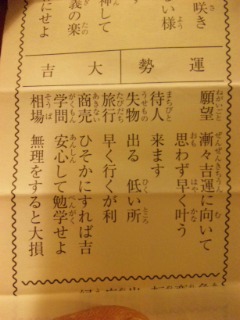 咲き
い様
押して
義の楽
にせよ
運勢
大吉
願望 漸々吉運に向いて
思わず早く叶う
待人 来ます
失物 出る 低い所
旅行 早く行くが利
商売 ひそかにすれば吉
学問 安心して勉学せよ
相場 無理をすると大損